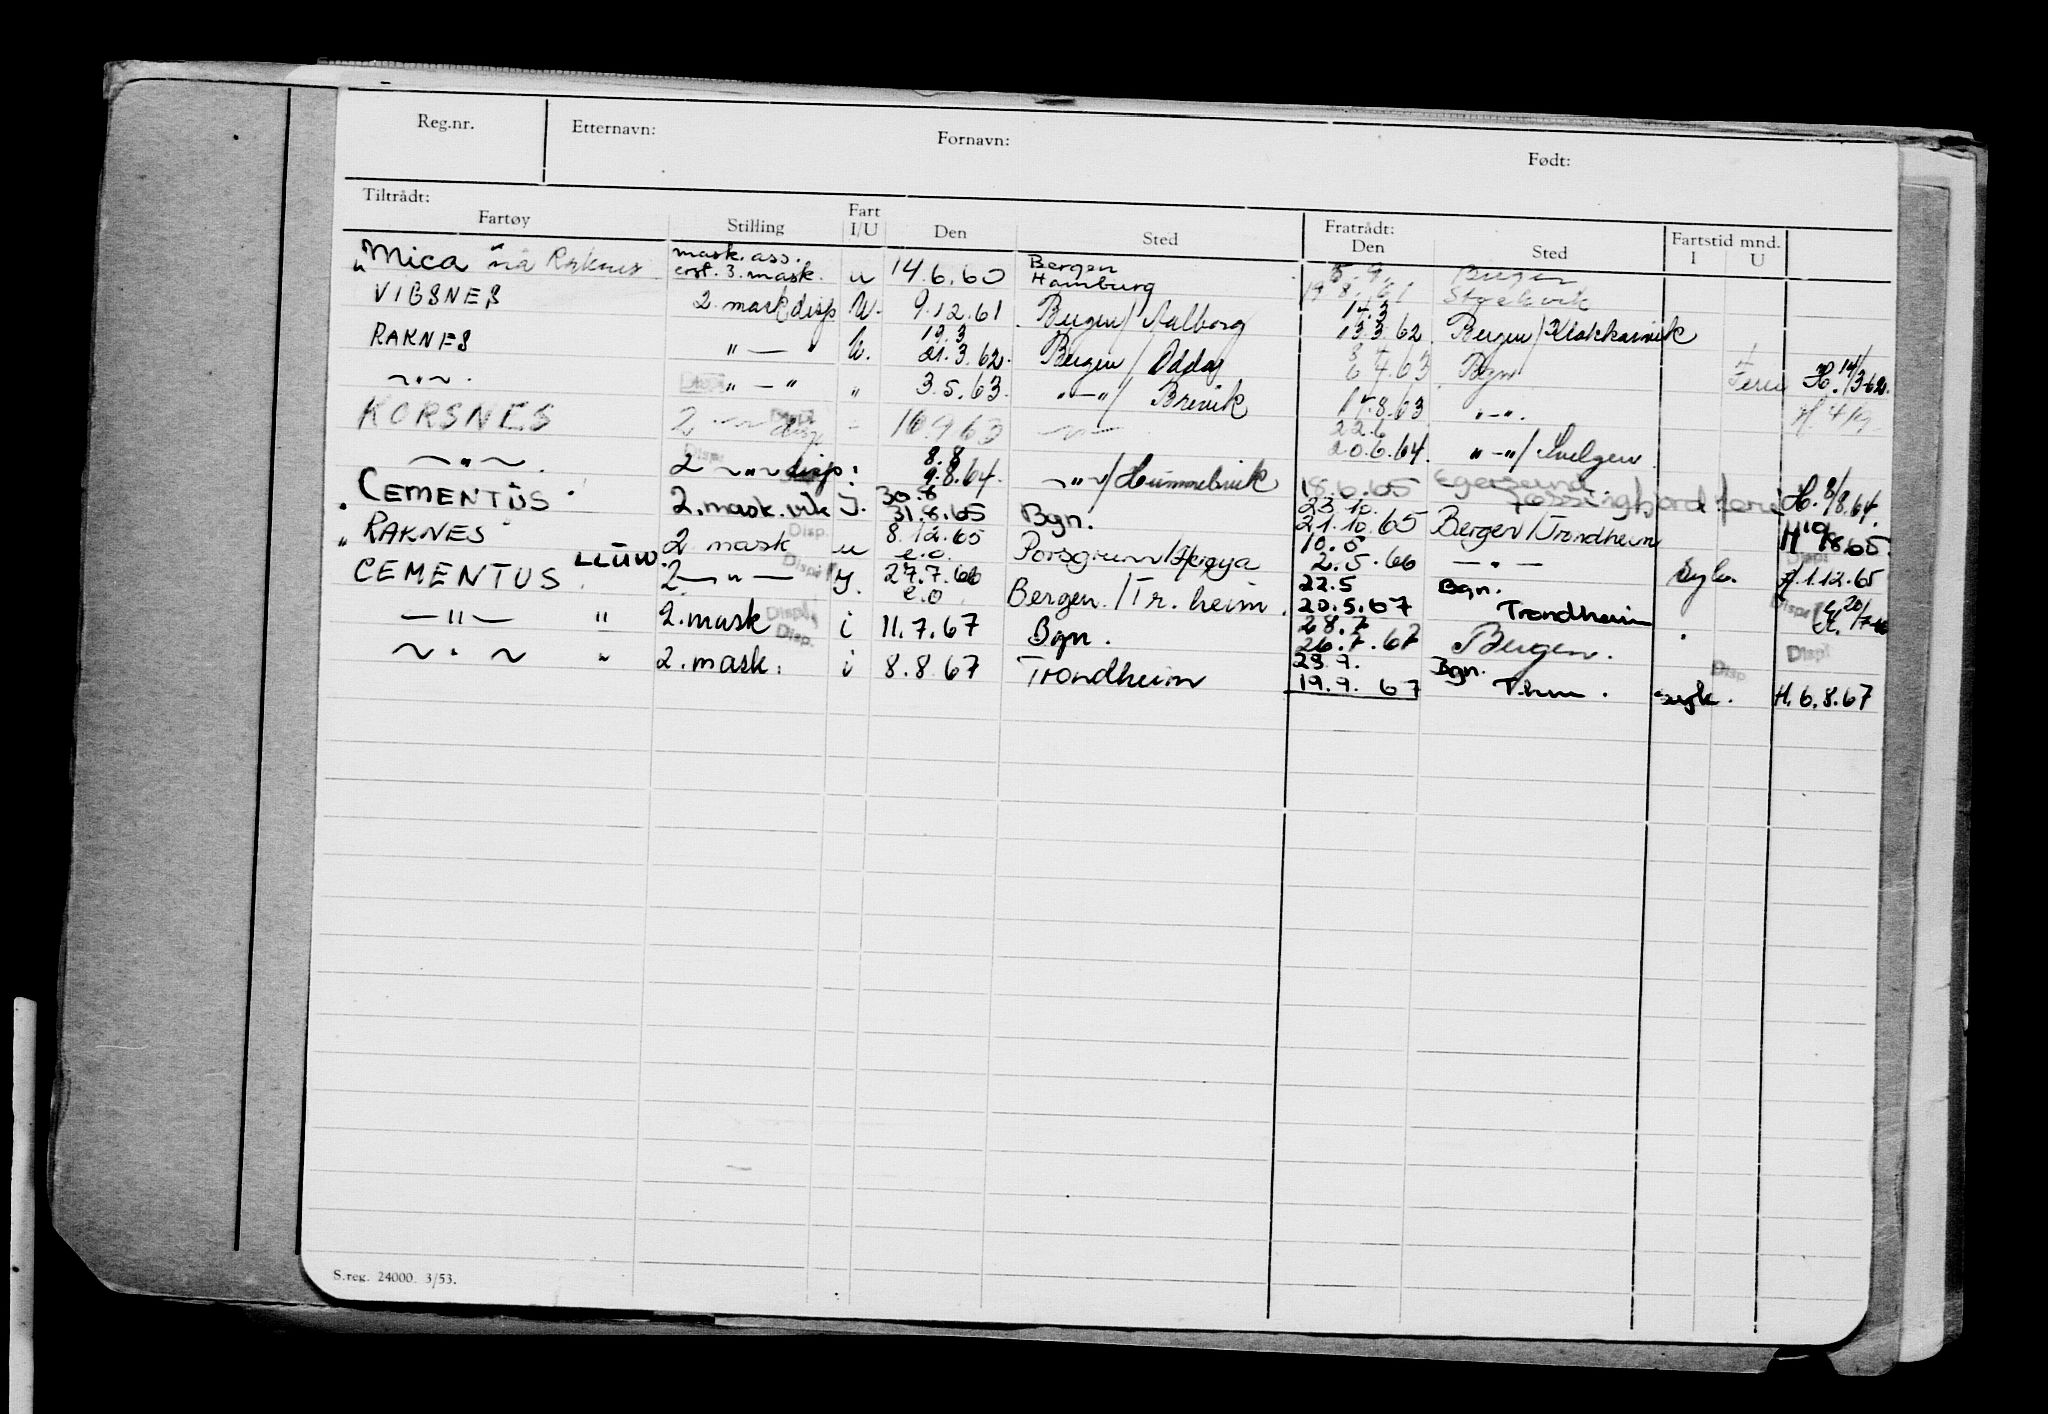 Reg.nr. Etternavn: Fornavn: Født:
Tiltrådt: Fratrådt:
Fartøy Stilling Fart I/U Den Sted Den Sted Fartstid mnd. I U
"Mica" nå Raknes mask. ass. erst. 3. mask. u 14.6.60 Bergen Hamburg Bergen
VIBSNES 2. mask disp U. 9.12.61 Bergen/Aalborg 14.3 13.3.62 Bergen/Klokkarvik
RAKNES " — " U. 19.3 21.3.62. Bergen/Odda 67.63 Bgn Ferie H. 14/3-62.
~"~. Disp. " — " " 3.5.63. "—"/Brevik 17.8.63 "—".
KORSNES 2 —"— disp " 16.9.63 —"— 22.6 20.6.64. "—"/Svelgen
—"~. Disp. 2 ~"~ disp: 8.8 9.8.64. ~"~/Hummelvik 18.6.65 Egersund Jøssingfjord ferie H. 8/8.64.
"CEMENTUS" 2. mask. vik I. 30.8 31.8.65 Bgn. 23.10. 21.10.65 Bergen/Trondheim H 19/8.65.
"RAKNES" 2 mask Disp. u 8.12.65 e.o. Porsgrunn/Herøya 10.5 2.5.66 —"— Syk. H. 1.12.65 Disp!
CEMENTUS LLUW. 2 —"— Disp! I. 27.7.66 e.o. Bergen./Tr.heim. 22.5 20.5.67 Bgn. Trondheim Disp! H. 20/7-66
—"— " 2. mask Disp! i 11.7.67 Bgn. 28.7 26.7.67 Bergen. Disp!
~"~ " 2. mask. Disp. i 8.8.67 Trondheim 23.9. 19.9.67 Bgn. Thm. syk. Disp H. 6.8.67
S.reg. 24000. 3/53.